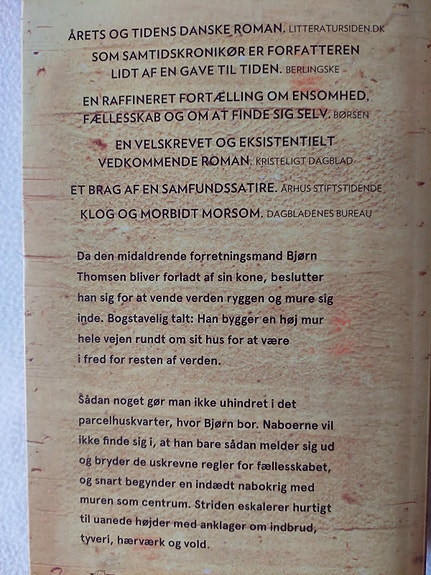 ÅRETS OG TIDENS DANSKE ROMAN. LITTERATURSIDEN.DK
SOM SAMTIDSKRONIKØR ER FORFATTEREN
LIDT AF EN GAVE TIL TIDEN. BERLINGSKE
EN RAFFINERET FORTÆLLING OM ENSOMHED,
FÆLLESSKAB OG OM AT FINDE SIG SELV. BØRSEN
EN VELSKREVET OG EKSISTENTIELT
VEDKOMMENDE ROMAN. KRISTELIGT DAGBLAD
ET BRAG AF EN SAMFUNDSSATIRE. ÅRHUS STIFTSTIDENDE
KLOG OG MORBIDT MORSOM. DAGBLADENES BUREAU
Da den midaldrende forretningsmand Bjørn
Thomsen bliver forladt af sin kone, beslutter
han sig for at vende verden ryggen og mure sig
inde. Bogstavelig talt: Han bygger en høj mur
hele vejen rundt om sit hus for at være
i fred for resten af verden.
Sådan noget gør man ikke uhindret i det
parcelhuskvarter, hvor Bjørn bor. Naboerne vil
ikke finde sig i, at han bare sådan melder sig ud
og bryder de uskrevne regler for fællesskabet,
og snart begynder en indædt nabokrig med
muren som centrum. Striden eskalerer hurtigt
til uanede højder med anklager om indbrud,
tyveri, hærværk og vold.